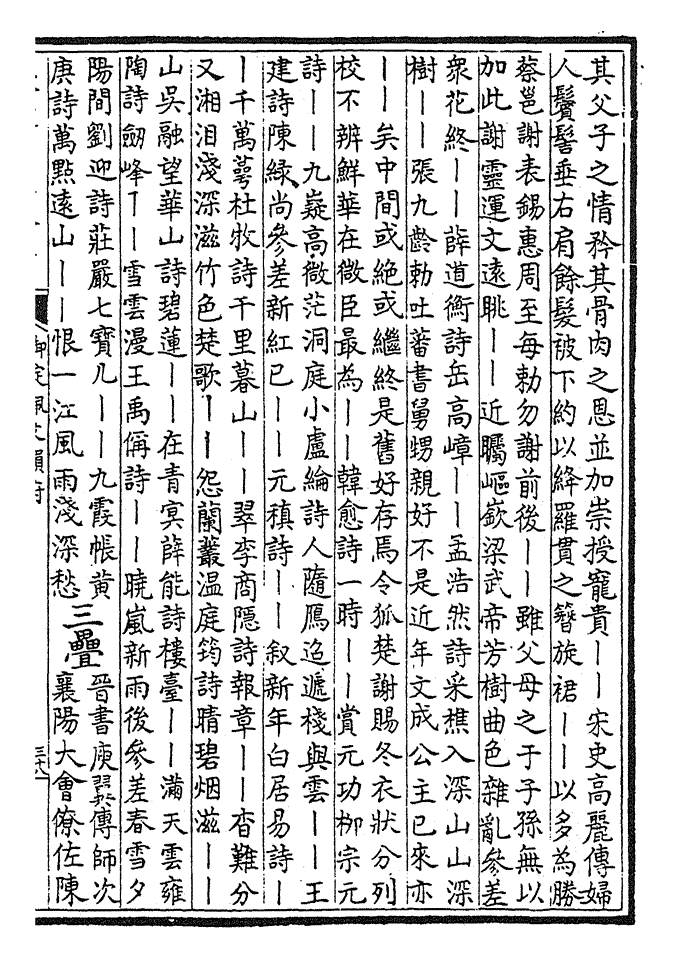 其父子之情矜其骨肉之恩並加崇授寵貴丨丨宋史高麗傳婦
人鬢髻垂右肩餘髮被下約以絳羅貫之簪旋裙丨丨以多為勝
蔡邕謝表錫惠周至每勅勿謝前後丨丨雖父母之于子孫無以
加此謝靈運文遠眺丨丨近矚嶇嶔梁武帝芳樹曲色雜亂參差
眾花終丨丨薛道衡詩岳高嶂丨丨孟浩然詩采樵入深山山深
樹丨丨張九齡勅吐蕃書舅甥親好不是近年文成公主已來亦
丨丨矣中間或絶或繼終是舊好存焉令狐楚謝賜冬衣狀分列
校不辨鮮華在微臣最為丨丨韓愈詩一時丨丨賞元功柳宗元
詩丨丨九嶷高微茫洞庭小盧綸詩人隨鴈迢遞棧與雲丨丨王
建詩陳緑尚參差新紅已丨丨元稹詩丨丨叙新年白居易詩丨
丨千萬蕚杜牧詩千里暮山丨丨翠李商隱詩報章丨丨杳難分
又湘泪淺深滋竹色楚歌丨丨怨蘭叢温庭筠詩晴碧烟滋丨丨
山吳融望華山詩碧蓮丨丨在青冥薛能詩樓臺丨丨滿天雲雍
陶詩劒峰丨丨雪雲漫王禹偁詩丨丨曉嵐新雨後參差春雪夕
陽間劉迎詩莊嚴七寶几丨丨九霞帳黄
庚詩萬點遠山丨丨恨一江風雨淺深愁
三疊
晉書庾翼傳師次
襄陽大會僚佐陳
御定佩文韻府
三十八